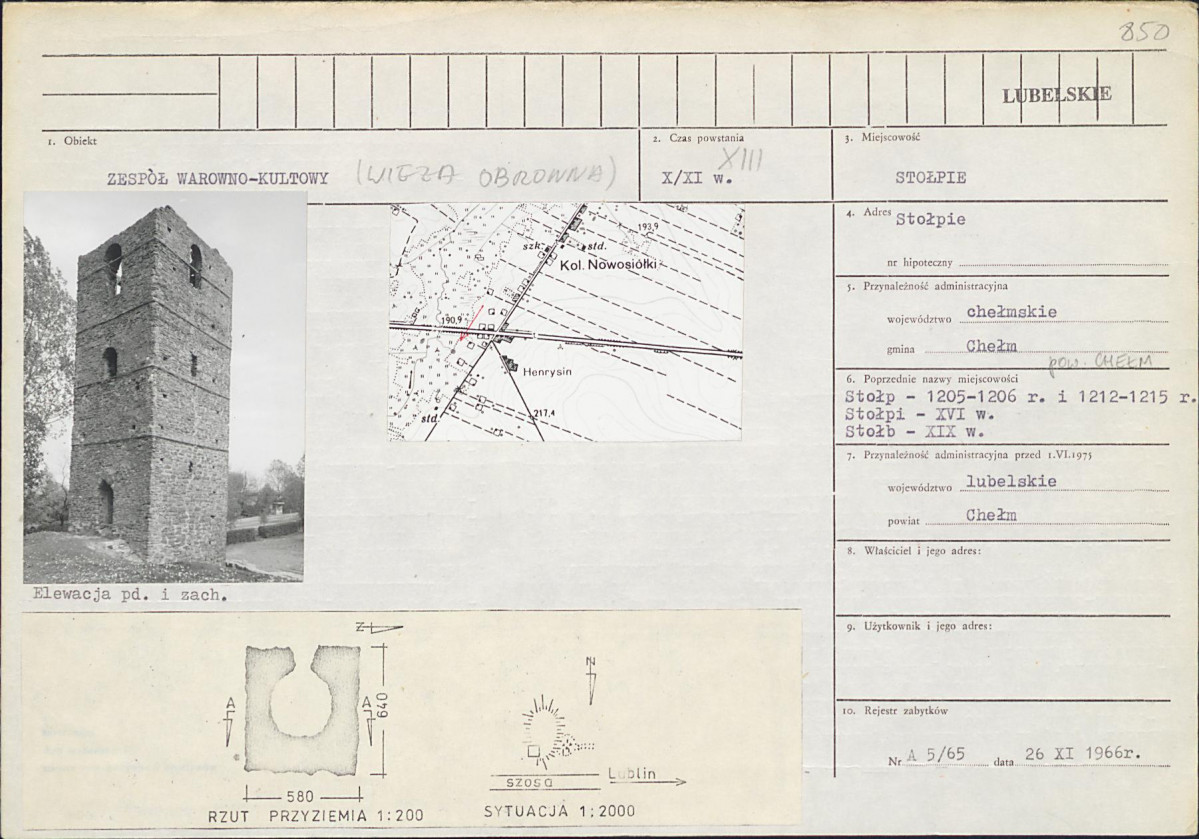 850
LUBELSKIE
1. Obiekt
ZESPÓŁ WAROWNO-KULTOWY (WIEŻA OBRONNA)
2. Czas powstania
XIII
X/XI w.
3. Miejscowość
STOŁPIE
4. Adres Stołpie
nr hipoteczny
5. Przynależność administracyjna
województwo chełmskie
gmina Chełm
pow. CHEŁM
6. Poprzednie nazwy miejscowości
Stołp - 1205-1206 r. i 1212-1215 r.
Stołpi - XVI w.
Stołb - XIX w.
7. Przynależność administracyjna przed 1.VI.1975
województwo lubelskie
powiat Chełm
8. Właściciel i jego adres:
9. Użytkownik i jego adres:
10. Rejestr zabytków
Nr A 5/65 data 26 XI 1966r.
193,9
szk. std.
Kol. Nowosiółki
190,9
Henrysin
217,4
std.
Elewacja pd. i zach.
Z
A A
640
580
RZUT PRZYZIEMIA 1:200
N
szosa Lublin
SYTUACJA 1:2000